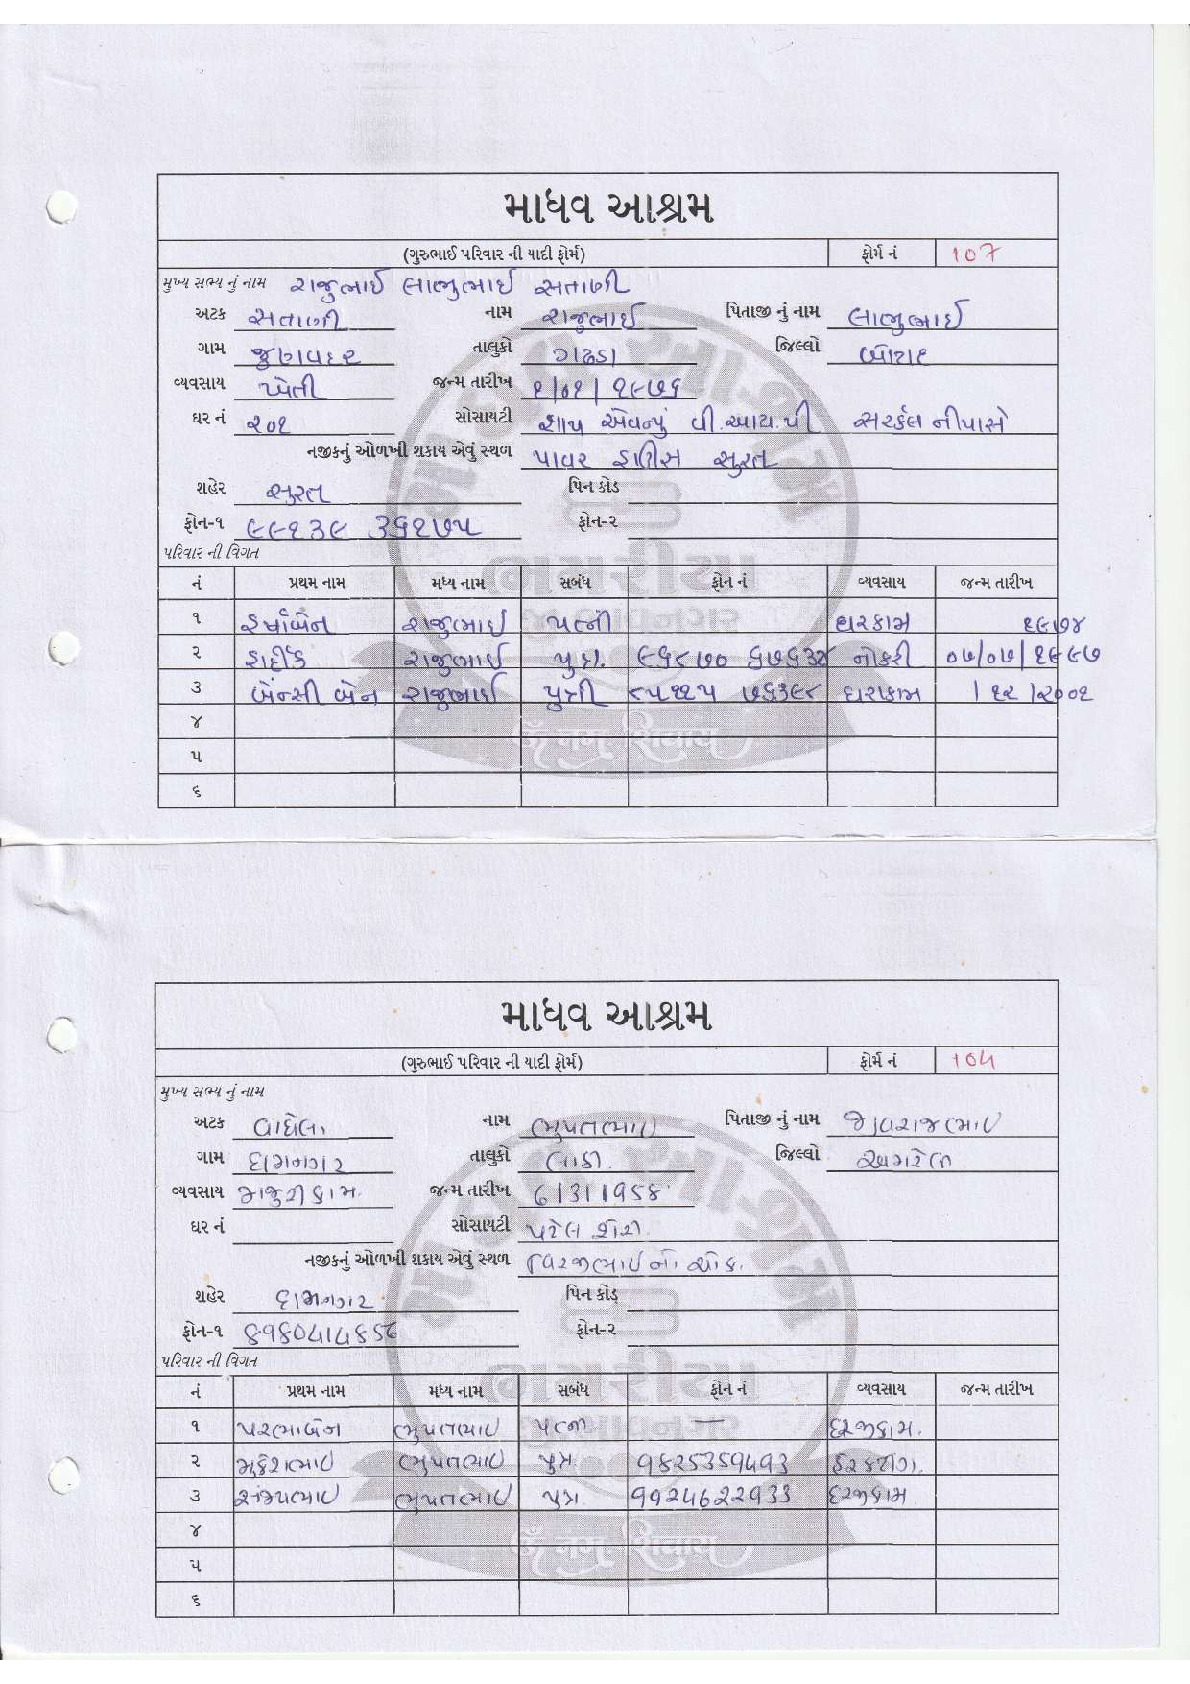 માધવ આશ્રમ
(ગુરુભાઈ પરિવાર ની યાદી ફોર્મ) ફોર્મ નં 107
મુખ્ય સભ્ય નું નામ રાજુભાઈ લાભુભાઈ સતાણી
અટક સતાણી નામ રાજુભાઈ પિતાજી નું નામ લાભુભાઈ
ગામ તાલુકો ગઢડા જિલ્લો બોટાદ
વ્યવસાય ખેતી જન્મ તારીખ ૧/૦૧/૧૯૭૬
ઘર નં ૨૦૧ સોસાયટી શાપ એવન્યુ વી.આય.પી સરર્કલ નીપાસે
નજીકનું ઓળખી શકાય એવું સ્થળ પાવર હાઉસ સુરત
શહેર સુરત પિન કોડ
ફોન-૧ ૯૯૧૩૯ ૩૬૧૭૫ ફોન-૨
પરિવાર ની વિગત
નં પ્રથમ નામ મધ્ય નામ સબંધ ફોન નં વ્યવસાય જન્મ તારીખ
૧ હર્ષાબેન રાજુભાઈ પત્ની ઘરકામ ૧૯૭૪
૨ હાર્દીક રાજુભાઈ પુત્ર. નોકરી ૦૭/૦૭/૧૯૯૭
૩ બેન્સી બેન રાજુભાઈ પુત્રી ઘરકામ /૧૨/૨૦૦૧
૪
૫
૬
માધવ આશ્રમ
(ગુરુભાઈ પરિવાર ની યાદી ફોર્મ) ફોર્મ નં 104
મુખ્ય સભ્ય નું નામ
અટક વાઘેલા નામ ભુપતભાઈ પિતાજી નું નામ જીવરાજભાઈ
ગામ દામનગર તાલુકો લાઠી જિલ્લો અમરેલી
વ્યવસાય મજુરીકામ. જન્મ તારીખ
ઘર નં સોસાયટી પટેલ શેરી.
નજીકનું ઓળખી શકાય એવું સ્થળ વિરજીભાઈ નો ચોક.
શહેર દામનગર પિન કોડ
ફોન-૧ ફોન-૨
પરિવાર ની વિગત
નં પ્રથમ નામ મધ્ય નામ સબંધ ફોન નં વ્યવસાય જન્મ તારીખ
૧ પરભાબેન ભુપતભાઈ પત્ની — દરજીકામ.
૨ મુકેશભાઈ ભુપતભાઈ પુત્ર
૩ ભુપતભાઈ પુત્ર 9924622933 દરજીકામ
૪
૫
૬